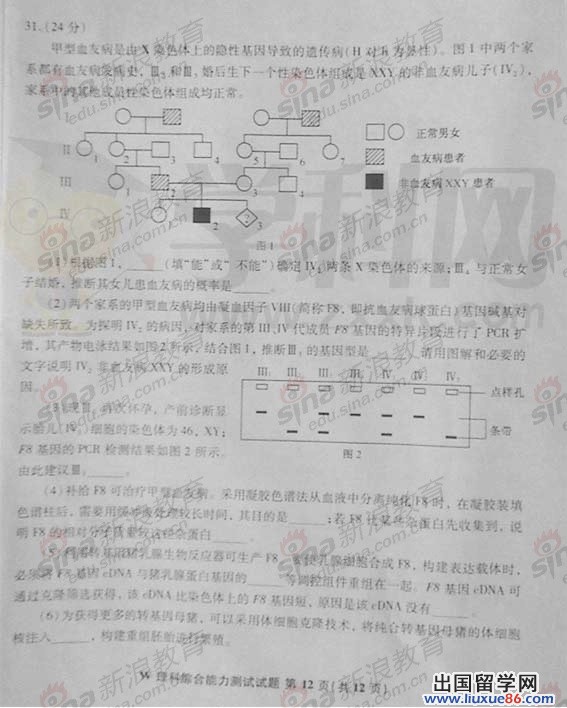 31.(24 分)
甲型血友病是由 X 染色体上的隐性基因导致的遗传病(H 对 h 为显性)。图 1 中两个家
系都有血友病发病史,Ⅲ₂和Ⅲ₃婚后生下一个性染色体组成是 XXY 的非血友病儿子(Ⅳ₂),
家系中的其他成员性染色体组成均正常。
Ⅱ 1 2 3 4 5 6 7
Ⅲ 1 2 3 4
Ⅳ 1 2 3
正常男女
血友病患者
非血友病 XXY 患者
图 1
(1) 根据图 1,______(填“能”或“不能”)确定Ⅳ₂两条 X 染色体的来源;Ⅲ₄与正常女
子结婚,推断其女儿患血友病的概率是______。
(2) 两个家系的甲型血友病均由凝血因子 VIII(简称 F8,即抗血友病球蛋白)基因碱基对
缺失所致。为探明Ⅳ₂的病因,对家系的第Ⅲ、Ⅳ代成员 F8 基因的特异片段进行了 PCR 扩
增,其产物电泳结果如图 2 所示,结合图 1,推断Ⅲ₃的基因型是______。请用图解和必要的
文字说明Ⅳ₂非血友病 XXY 的形成原
因。
Ⅲ₁ Ⅲ₂ Ⅲ₃ Ⅲ₄ Ⅳ₁ Ⅳ₂ Ⅳ₃
点样孔
条带
图 2
(3) 现Ⅲ₃再次怀孕,产前诊断显
示胎儿(Ⅳ₃)细胞的染色体为 46,XY;
F8 基因的 PCR 检测结果如图 2 所示。
由此建议Ⅲ₃______。
(4) 补给 F8 可治疗甲型血友病。采用凝胶色谱法从血液中分离纯化 F8 时,在凝胶装填
色谱柱后,需要用缓冲液处理较长时间,其目的是______;若 F8 比某些杂蛋白先收集到,说
明 F8 的相对分子质量较这些杂蛋白______。
(5) 利用转基因猪乳腺生物反应器可生产 F8。要使乳腺细胞合成 F8,构建表达载体时,
必须将 F8 基因 cDNA 与猪乳腺蛋白基因的______等调控组件重组在一起。F8 基因 cDNA 可
通过克隆筛选获得,该 cDNA 比染色体上的 F8 基因短,原因是该 cDNA 没有______。
(6) 为获得更多的转基因母猪,可以采用体细胞克隆技术,将纯合转基因母猪的体细胞
核注入______,构建重组胚胎进行繁殖。
W 理科综合能力测试试题 第 12 页(共 12 页)
sina 新浪教育
edu.sina.com.cn
学科网
出国留学网
www.liuxue86.com